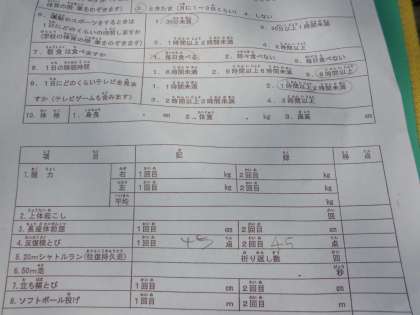 体育の授業をのぞきます
3. ときたま(月に1〜3日くらい) しない
6. 運動やスポーツをするときは
1日にどのくらいの時間しますか
(学校の体育の授業をのぞきます)
1. 30分未満
3. 1時間以上2時間未満 4. 2時間以上
7. 朝食は食べますか 1. 毎日食べる 2. 時々食べない 3. 毎日食べない
8. 1日の睡眠時間 1. 6時間未満 2. 6時間以上8時間未満 3. 8時間以上
9. 1日にどのくらいテレビを見ま
すか(テレビゲームも含みます)
1. 1時間未満 2. 1時間以上2時間未満
3. 2時間以上3時間未満 4. 3時間以上
10. 体格 1. 身長 . cm 2. 体重 . kg
項目 記録 得点
1. 握力 右 1回目 kg 2回目 kg
左 1回目 kg 2回目 kg
平均 kg
2. 上体起こし 回
3. 長座体前屈 1回目 cm 2回目 cm
4. 反復横とび 1回目 45 点 2回目 45 点
5. 20mシャトルラン(往復持久走) 折り返し数 回
6. 50m走 秒
7. 立ち幅とび 1回目 cm 2回目 cm
8. ソフトボール投げ 1回目 m 2回目 m